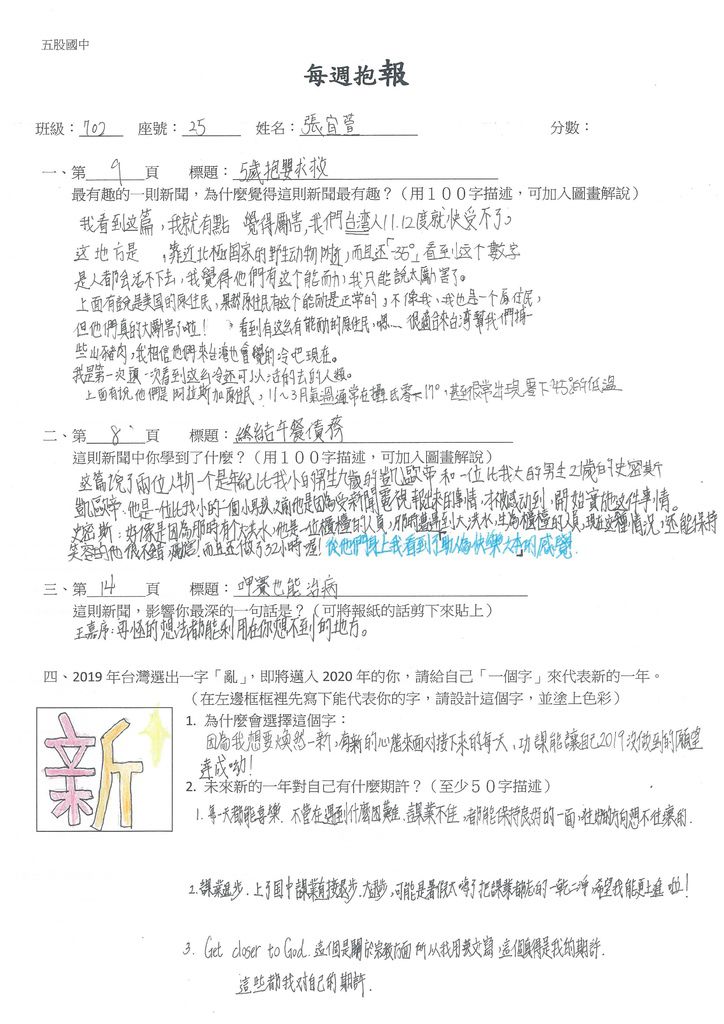 五股國中
每週抱報
班級：702 座號：25 姓名：張宜萱 分數：
一、第 9 頁 標題：5歲抱嬰求救
最有趣的一則新聞，為什麼覺得這則新聞最有趣？（用１００字描述，可加入圖畫解說）
我看到这篇，我就有點 覺得厲害，我們台湾人11.12度就快受不了。
这地方是 ，靠近北極国家的野生动物附近，而且还「-35°」看到这个數字
是人都会活不下去，我覺得他們有这个能耐力，我只能說太厲害了。
上面有說是美国的原住民，果都原住民有这个能動是正常的；不像我，我也是一个原住民，
但他們真的太厲害了啦！ 看到有这么有能動的原住民，嗯…… 很適合來台湾幫我們捕
些山豬肉，我相信他們來台湾也會覺的冷也現在。
我是第一次頭一次看到这么冷还可以活的去的人類。
上面有說他們是阿拉斯加原住民，11～3月氣溫通常在攝氏零下17°，甚至很常出現零下45°的低溫
二、第 8 頁 標題：終結午餐債務
這則新聞中你學到了什麼？（用１００字描述，可加入圖畫解說）
这篇說了兩位人物一个是年紀比我小的男生九歲的凱歐帝和一位比我大的男生21歲的史密斯
凱歐帝：他是一位比我小的一個小男孩，而他是因為受新聞電視報出來的事情，才被感动到，開始賣他这件事情。
史密斯：好像是因為那時有个大洪水，他是一位櫃檯的人員，那時遇到大洪水，生為櫃檯的人員，現在这種情況，还能保持
笑容的他很不錯 而且还做了32小時喔！從他們身上我看到了助人為快樂之本的感覺.
三、第 14 頁 標題：呷賽也能治病
這則新聞，影響你最深的一句話是？（可將報紙的話剪下來貼上）
王嘉序：再怪的想法都能利用在你想不到的地方。
四、2019 年台灣選出一字「亂」，即將邁入 2020 年的你，請給自己「一個字」來代表新的一年。
（在左邊框框裡先寫下能代表你的字，請設計這個字，並塗上色彩）
新
1. 為什麼會選擇這個字：
因為我想要煥然一新，有新的心態來面對接下來的每天，功課能讓自己2019沒做到的願望
達成呦！
2. 未來新的一年對自己有什麼期許？（至少５０字描述）
1. 每一天都能喜樂. 不管在遇到什麼困難. 課業不佳，都能保持良好的一面，往好的方向想不往壞的.
2. 課業進步. 上了国中課業有接退步. 大退步，可能是暑假太嗨了把課業都忘的一乾二淨，希望我能更上進 啦！
3. Get closer to God. 這個是關於宗教方面 所以我用英文寫，這個真得是我的期許.
這些都我對自己的期許.